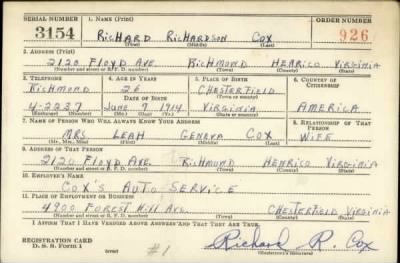 SERIAL NUMBER 1. NAME (Print) ORDER NUMBER
3154 RICHARD RICHARDSON COX 926
(First) (Middle) (Last)
2. ADDRESS (Print)
2120 FLOYD AVE. RICHMOND HENRICO VIRGINIA
(Number and street or R. F. D. number) (Town) (County) (State)
3. TELEPHONE 4. AGE IN YEARS 5. PLACE OF BIRTH 6. COUNTRY OF CITIZENSHIP
RICHMOND 26 CHESTERFIELD
DATE OF BIRTH (Town or county)
4-2237 JUNE 9 1914 VIRGINIA AMERICA
(Exchange) (Number) (Mo.) (Day) (Yr.) (State or country)
7. NAME OF PERSON WHO WILL ALWAYS KNOW YOUR ADDRESS 8. RELATIONSHIP OF THAT PERSON
MRS. LEAH GENEVA COX WIFE
(Mr., Mrs., Miss) (First) (Middle) (Last)
9. ADDRESS OF THAT PERSON
2120 FLOYD AVE. RICHMOND HENRICO VIRGINIA
(Number and street or R. F. D. number) (Town) (County) (State)
10. EMPLOYER'S NAME
COX'S AUTO SERVICE
11. PLACE OF EMPLOYMENT OR BUSINESS
4900 FOREST HILL AVE. CHESTERFIELD VIRGINIA
(Number and street or R. F. D. number) (Town) (County) (State)
I AFFIRM THAT I HAVE VERIFIED ABOVE ANSWERS AND THAT THEY ARE TRUE.
REGISTRATION CARD
D. S. S. FORM 1 (over) #1 Richard R. Cox
(Registrant's signature)